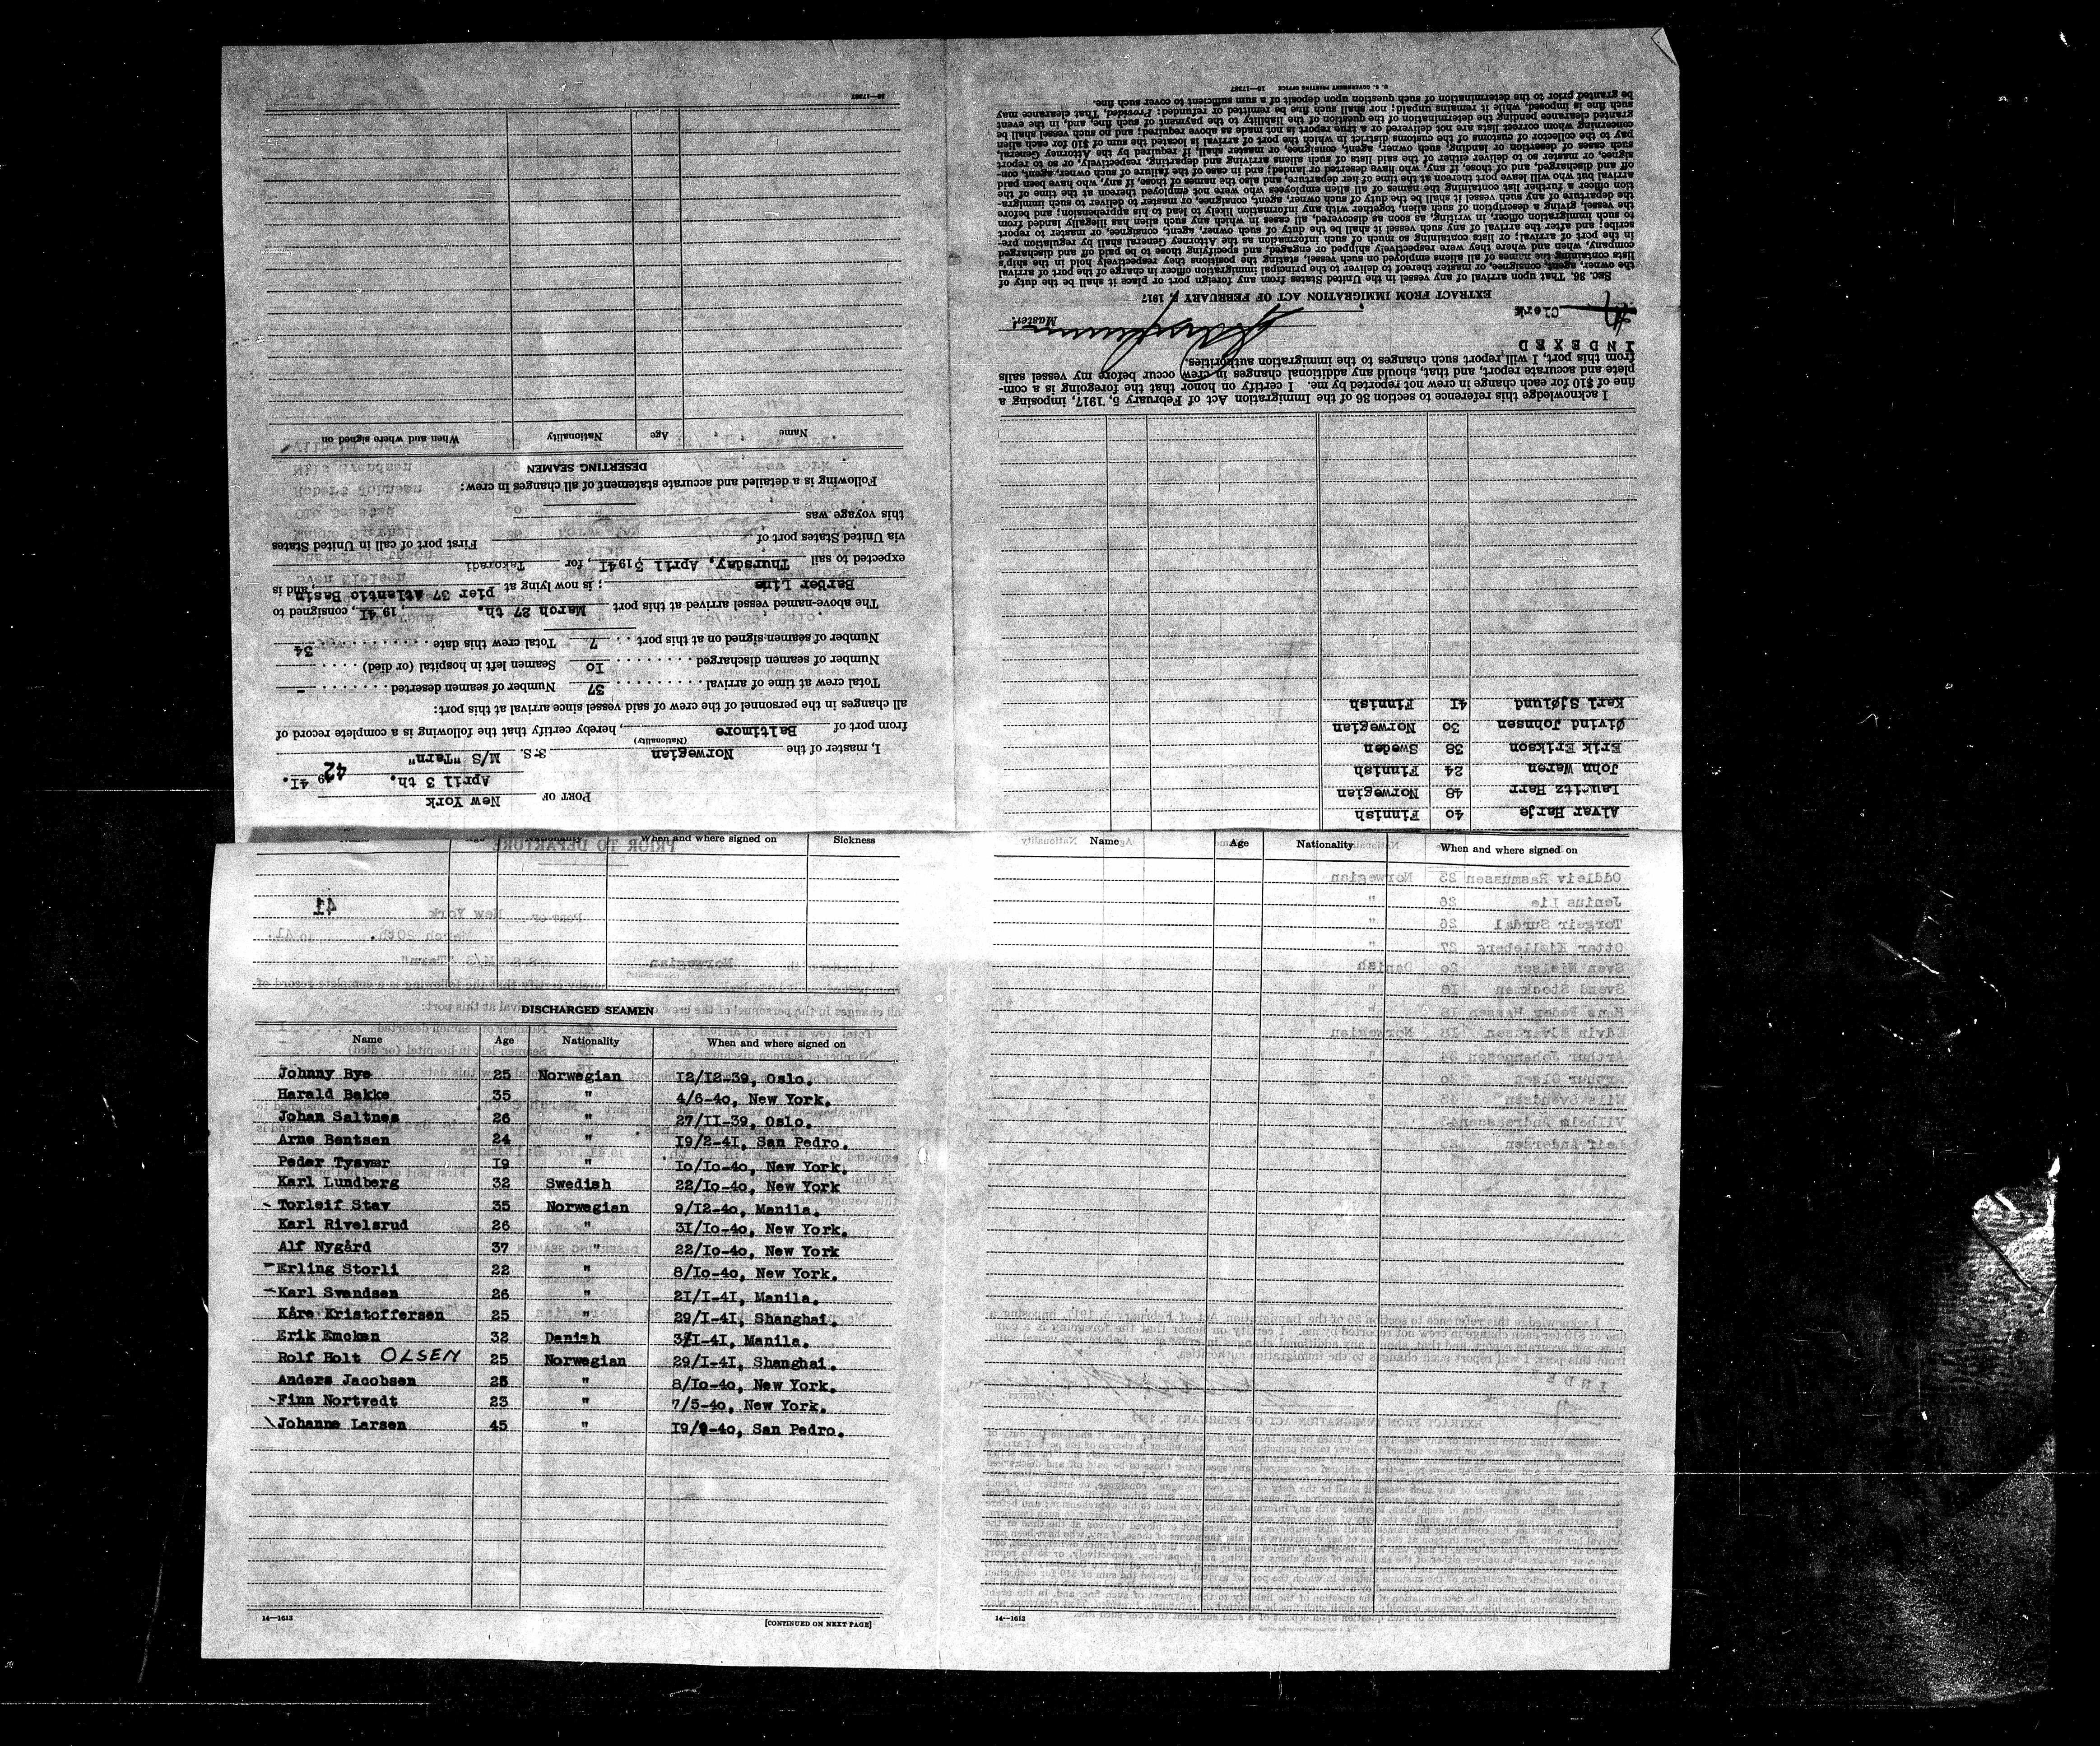 PORT OF New York
April 3 th. 1941.
42
I, master of the Norwegian S.S. M/S "Tarn"
(Nationality)
from port of Baltimore, hereby certify that the following is a complete record of
all changes in the personnel of the crew of said vessel since arrival at this port:
Total crew at time of arrival 37 Number of seamen deserted -
Number of seamen discharged 10 Seamen left in hospital (or died)
Number of seamen signed on at this port 7 Total crew this date 34
The above-named vessel arrived at this port March 27 th., 1941, consigned to
Barber Line; is now lying at pier 37 Atlantic Basin and is
expected to sail Thursday, April 3, 1941, for Takoradi
via United States port of First port of call in United States
this voyage was
Following is a detailed and accurate statement of all changes in crew:
DESERTING SEAMEN
Name Age Nationality When and where signed on
16—17267
Alvar Harje 40 Finnish
Lauritz Harr 48 Norwegian
John Waren 24 Finnish
Erik Erikson 38 Sweden
Øivind Johnsen 30 Norwegian
Karl Sjølund 41 Finnish
I acknowledge this reference to section 36 of the Immigration Act of February 5, 1917, imposing a
fine of $10 for each change in crew not reported by me. I certify on honor that the foregoing is a com-
plete and accurate report, and that, should any additional changes in crew occur before my vessel sails
from this port, I will report such changes to the immigration authorities.
INDEXED
Clerk
Master.
EXTRACT FROM IMMIGRATION ACT OF FEBRUARY 5, 1917
SEC. 36. That upon arrival of any vessel in the United States from any foreign port or place it shall be the duty of
the owner, agent, consignee, or master thereof to deliver to the principal immigration officer in charge of the port of arrival
lists containing the names of all aliens employed on such vessel, stating the positions they respectively hold in the ship's
company, when and where they were respectively shipped or engaged, and specifying those to be paid off and discharged
in the port of arrival; or lists containing so much of such information as the Attorney General shall by regulation pre-
scribe; and after the arrival of any such vessel it shall be the duty of such owner, agent, consignee, or master to report
to such immigration officer, in writing, as soon as discovered, all cases in which any such alien has illegally landed from
the vessel, giving a description of such alien, together with any information likely to lead to his apprehension; and before
the departure of any such vessel it shall be the duty of such owner, agent, consignee, or master to deliver to such immigra-
tion officer a further list containing the names of all alien employees who were not employed thereon at the time of the
arrival but who will leave port thereon at the time of her departure, and also the names of those, if any, who have been paid
off and discharged, and of those, if any, who have deserted or landed; and in case of the failure of such owner, agent, con-
signee, or master so to deliver either of the said lists of such aliens arriving and departing, respectively, or so to report
such cases of desertion or landing, such owner, agent, consignee, or master shall, if required by the Attorney General,
pay to the collector of customs of the customs district in which the port of arrival is located the sum of $10 for each alien
concerning whom correct lists are not delivered or a true report is not made as above required; and no such vessel shall be
granted clearance pending the determination of the question of the liability to the payment of such fine, and, in the event
such fine is imposed, while it remains unpaid; nor shall such fine be remitted or refunded: Provided, That clearance may
be granted prior to the determination of such question upon deposit of a sum sufficient to cover such fine.
U. S. GOVERNMENT PRINTING OFFICE 16—17267
Name Age Nationality When and where signed on Sickness
DISCHARGED SEAMEN
Name Age Nationality When and where signed on
Johnny Bye 25 Norwegian 12/12-39, Oslo.
Harald Bakke 35 " 4/6-40, New York.
Johan Saltnes 26 " 27/11-39, Oslo.
Arne Bentsen 24 " 19/2-41, San Pedro.
Peder Tysvær 19 " 10/10-40, New York.
Karl Lundberg 32 Swedish 22/10-40, New York
Torleif Stav 35 Norwegian 9/12-40, Manila.
Karl Rivelsrud 26 " 31/10-40, New York.
Alf Nygård 37 " 22/10-40, New York
Erling Storli 22 " 8/10-40, New York.
Karl Svendsen 26 " 21/1-41, Manila.
Kåre Kristoffersen 25 " 29/1-41, Shanghai.
Erik Emcken 32 Danish 1-41, Manila.
Rolf Holt OLSEN 25 Norwegian 29/1-41, Shanghai.
Anders Jacobsen " 8/10-40, New York.
Finn Nortvedt 23 " 7/5-40, New York.
Johanne Larsen 45 " San Pedro.
14—1613 [CONTINUED ON NEXT PAGE]
Name Age Nationality When and where signed on
14—1613